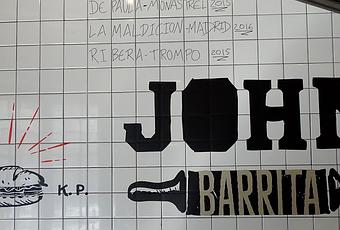 DE PAULA-MONASTREL 2015
LA MALDICION-MADRID 2016
RIBERA-TROMPO 2015
JOHN
K.P.
BARRITA